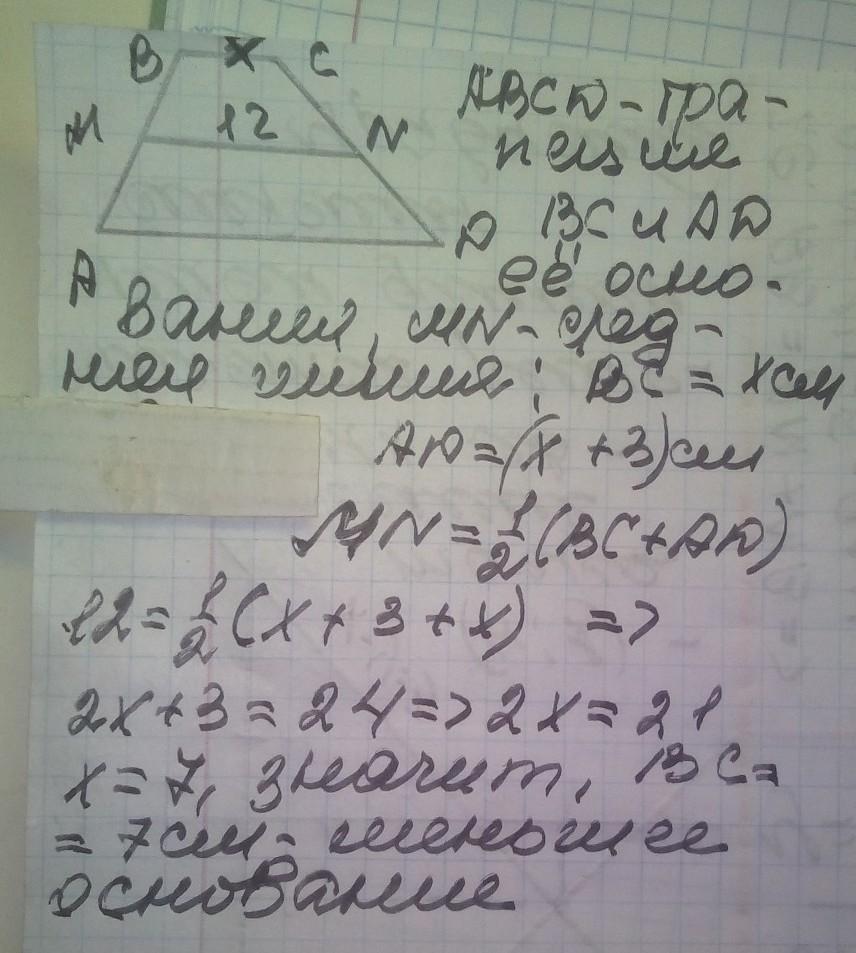 B x C
M 12 N
A D
ABCD - тра-
пеция
BC и AD
её осно-
вания, MN - сред-
няя линия; BC = x см
AD = (x + 3) см
MN = 1/2 (BC + AD)
12 = 1/2 (x + 3 + x) =>
2x + 3 = 24 => 2x = 21
x = 7, значит, BC =
= 7 см - меньшее
основание